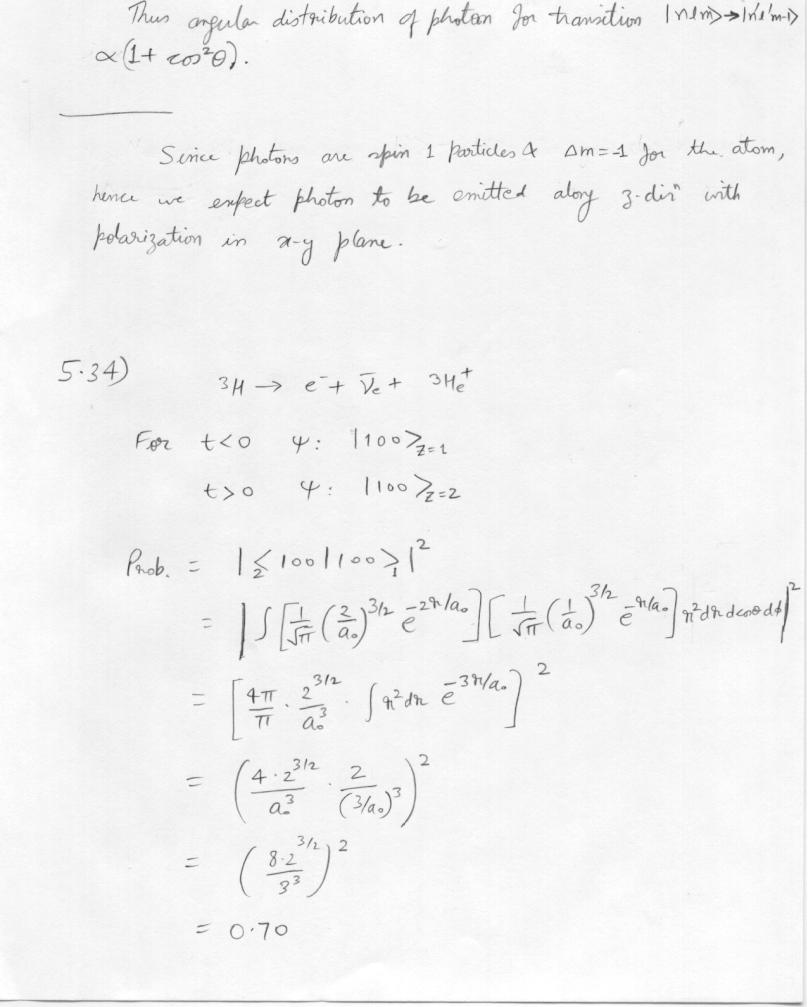 Thus angular distribution of photon for transition |nlm>→|n'l'm-1>
∝(1+ cos²θ).
Since photons are spin 1 particles & Δm=-1 for the atom,
hence we expect photon to be emitted along z-dirⁿ with
polarization in x-y plane.
5.34) ³H → e⁻ + ν̄e + ³He⁺
For t<0 ψ: |100>z=1
t>0 ψ: |100>z=2
Prob. = |₂<100|100>₁|²
= |∫[1/√π (2/a₀)^3/2 e^-2r/a₀][1/√π (1/a₀)^3/2 e^-r/a₀] r²dr dcosθ dϕ|²
= [4π/π · 2^3/2/a₀³ · ∫r²dr e^-3r/a₀]²
= (4·2^3/2/a₀³ · 2/(3/a₀)³)²
= (8·2^3/2/3³)²
= 0.70